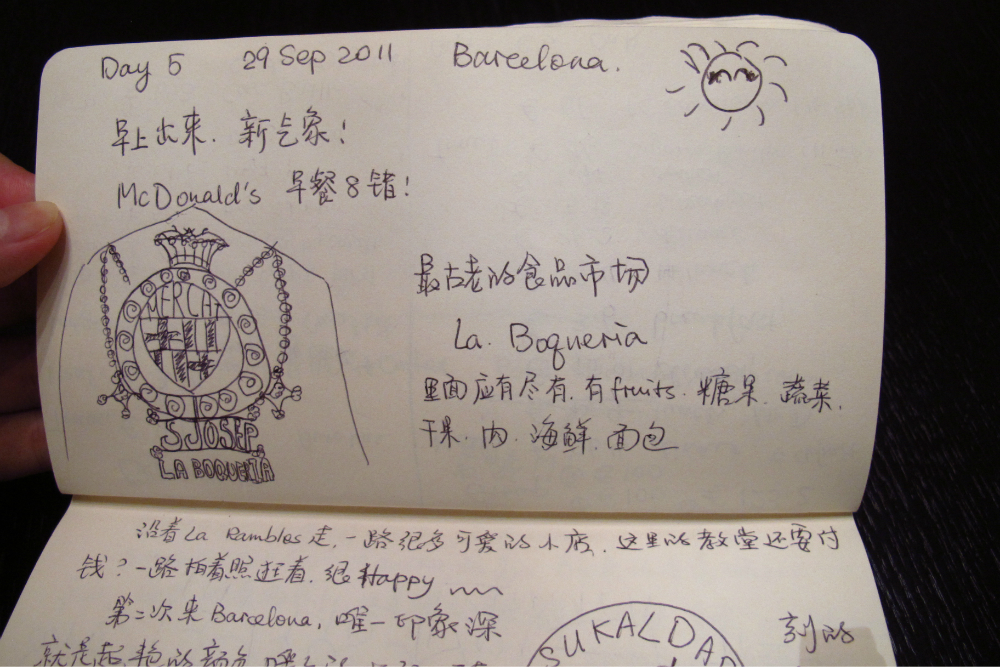 Day 5 29 Sep 2011 Barcelona.
早上出来. 新气象!
McDonald's 早餐8错!
MERCAT
S. JOSEP
LA BOQUERIA
最古老的食品市场
La. Boqueria
里面应有尽有. 有fruits. 糖果. 蔬菜.
干果. 肉. 海鲜. 面包
沿着La Rambles走, 一路很多可爱的小店. 这里的教堂还要付
钱? 一路拍着照逛着. 很Happy
第二次来Barcelona, 唯一印象深刻的
就是超艳的颜色
SUKALDAR